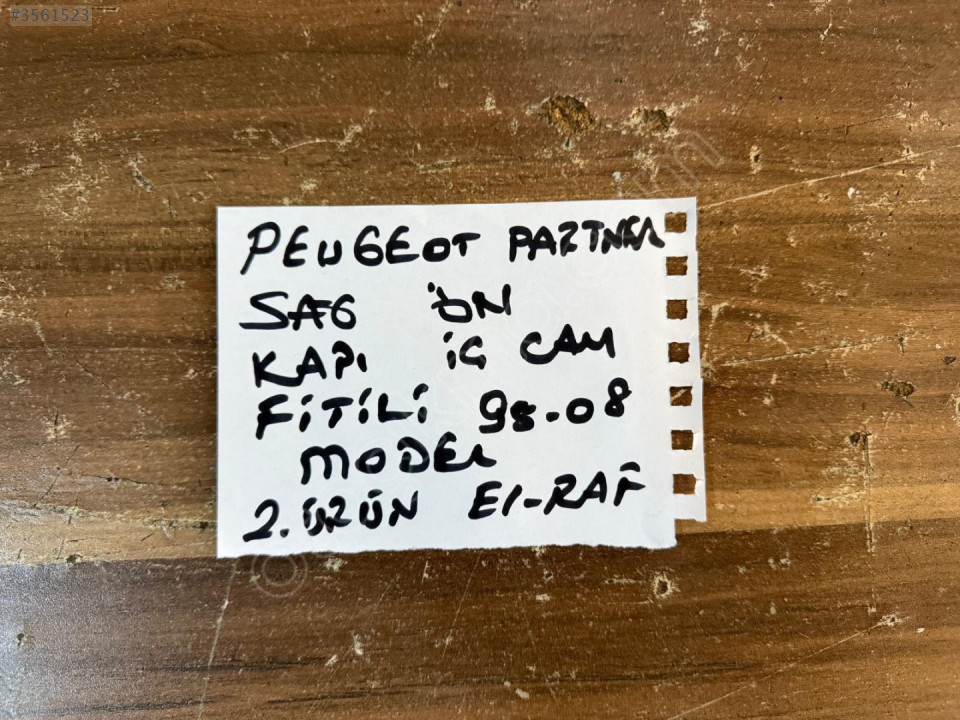 #3561523
PEUGEOT PARTNER
SAĞ ÖN
KAPI İÇ CAM
FİTİLİ 98-08
MODEL
2.ÜRÜN E1-RAF